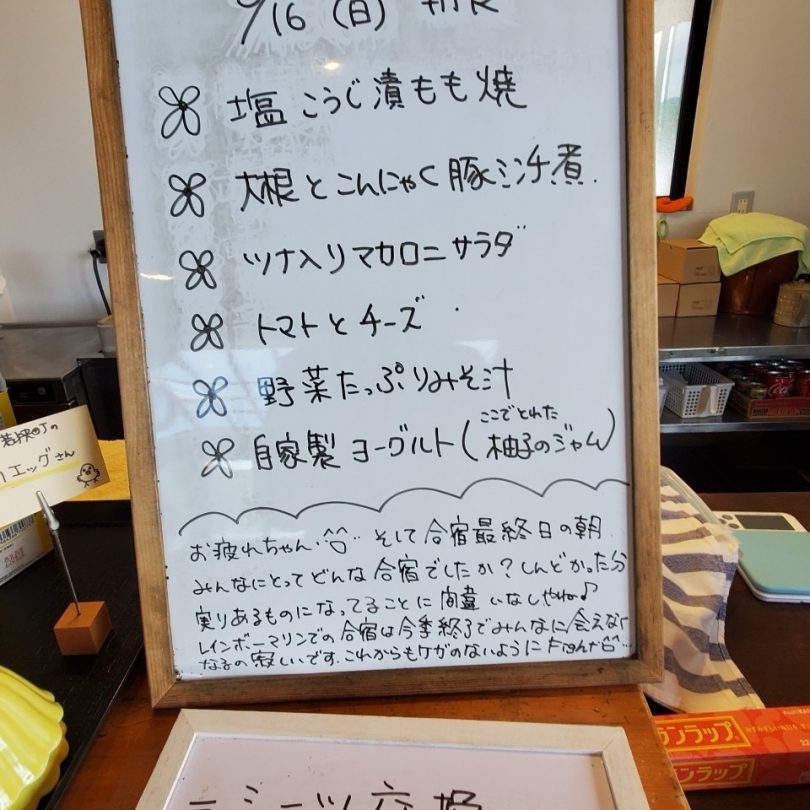 9/16(日) 朝食
塩こうじ漬もも焼
大根とこんにゃく豚ミンチ煮.
ツナ入りマカロニサラダ
トマトとチーズ
野菜たっぷりみそ汁
自家製ヨーグルト(ここでとれた柚子のジャム)
お疲れちゃん^^ そして合宿最終日の朝
みんなにとってどんな合宿でしたか?しんどかった分
実りあるものになってることに間違いなしやね♪
レインボーマリンでの合宿は今季終了でみんなに会えなく
なるの寂しいです.これからもケガのないように Fight^^
若狭町の
エッグさん
シーツ交換
ランラップ
ンラップ